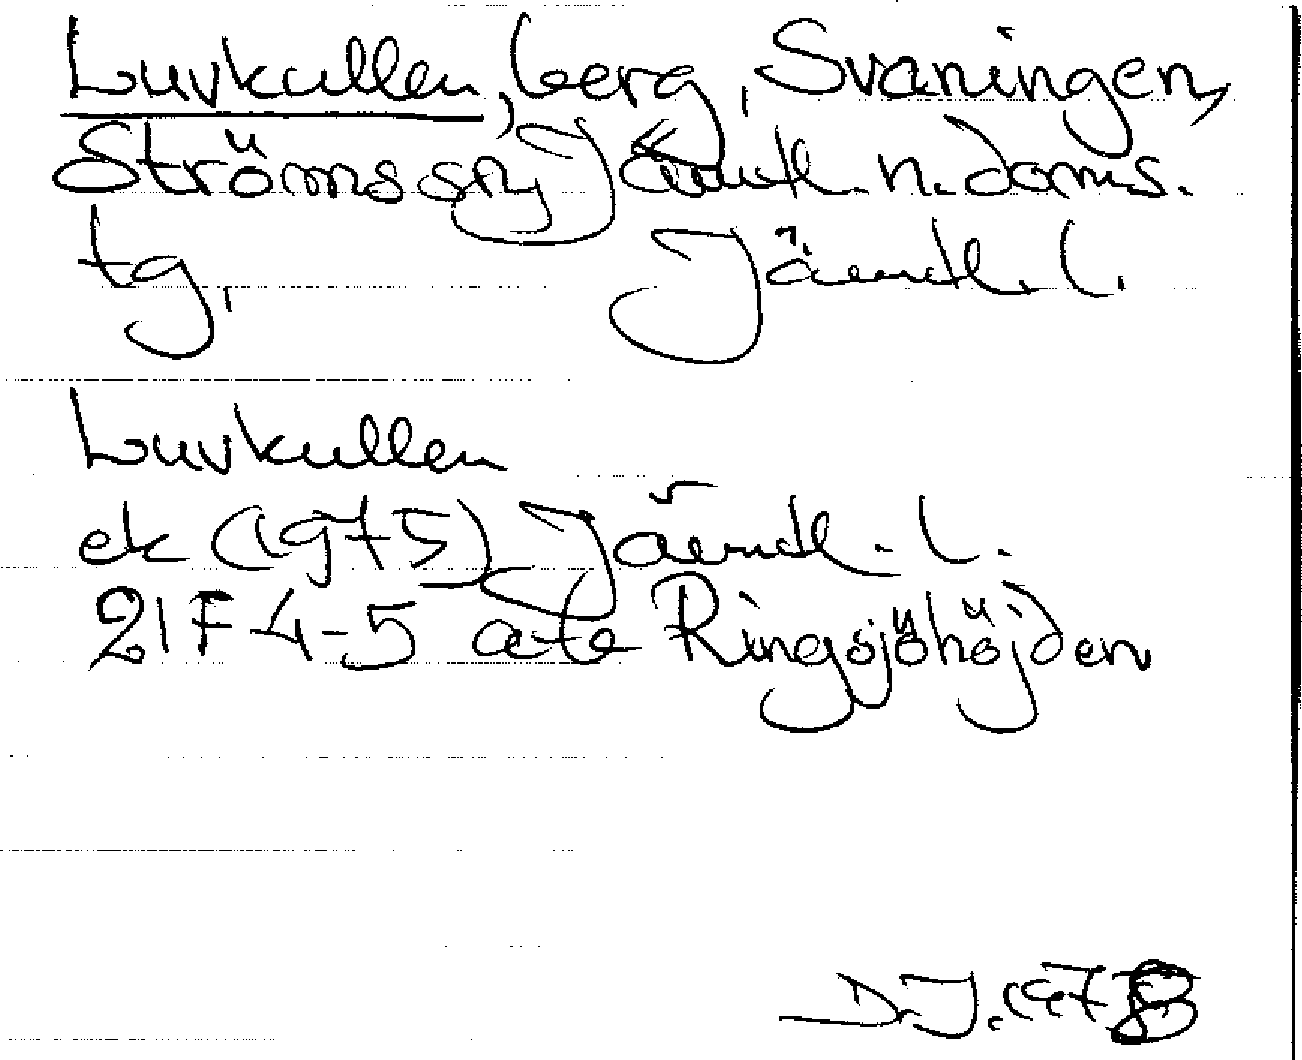 Luvkullen, berg, Svaningen,
Ströms sn, Jämtl. n. doms.
tg, Jämtl. l.
Luvkullen
ek (1975) Jämtl. l.
21F 4-5 a-te Ringsjöhöjden
D.J. 1978